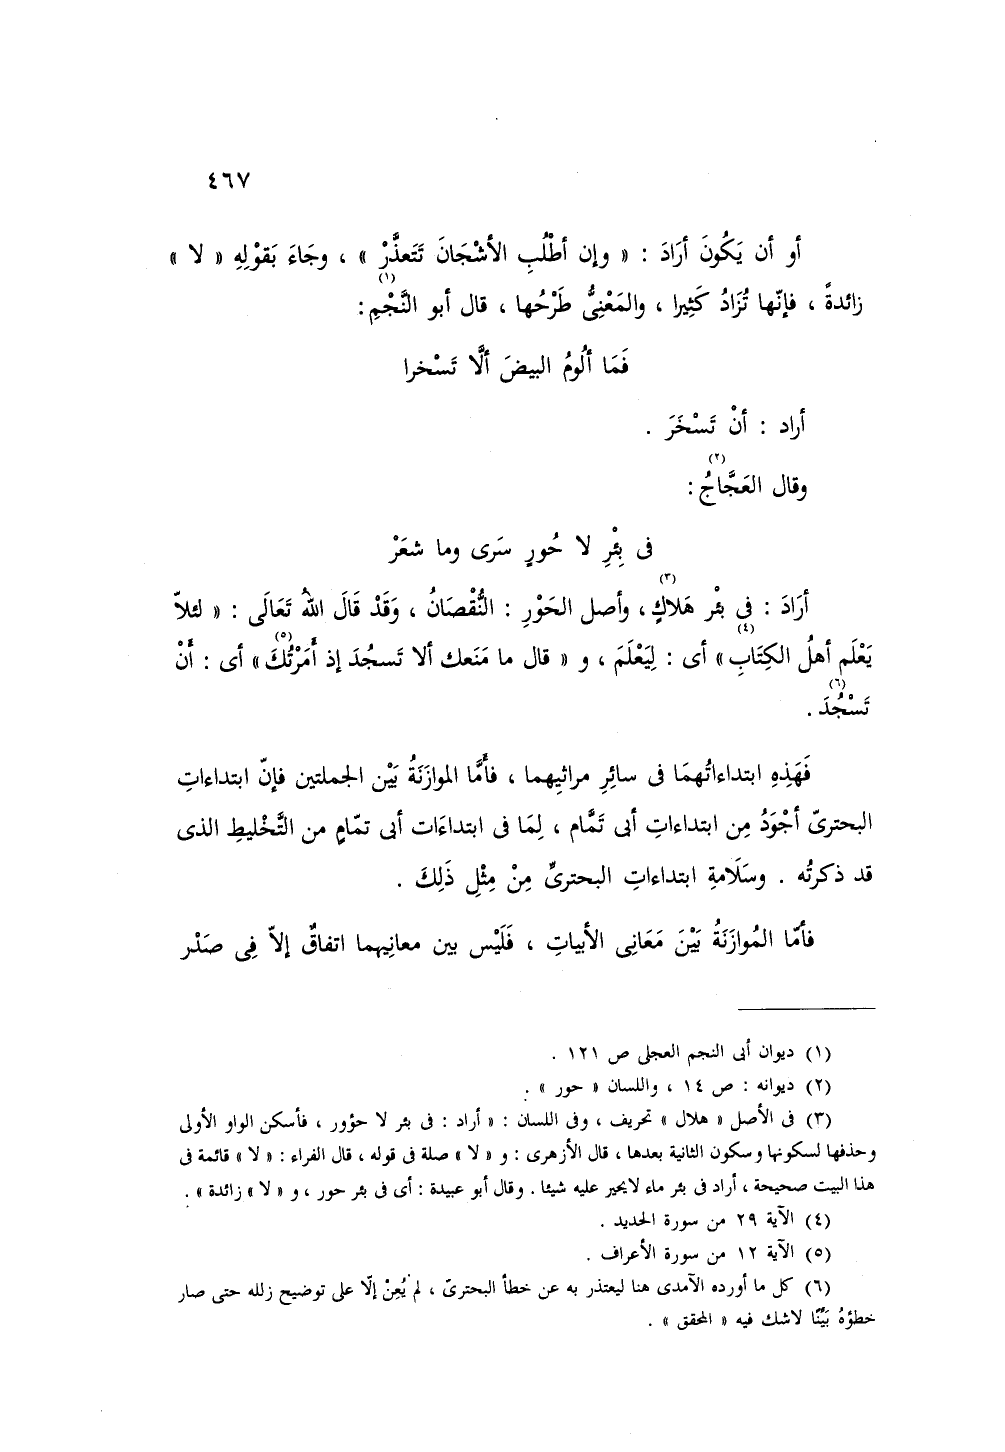 ٤٦٧
أو أن يَكُونَ أرَادَ : « وإن أطْلُبِ الأشْجَانَ تَتَعذَّرْ » ، وجَاءَ بَقوْلِهِ « لا »
زائدةً ، فإنّها تُزَادُ كَثِيرا ، والمَعْنِىُّ طَرْحُها ، قال أبو النَّجْمِ(١) :
فَمَا ألُومُ البيضَ ألَّا تَسْخرا
أراد : أنْ تَسْخَرَ .
وقال العَجَّاجُ(٢) :
فى بِئْرِ لا حُورٍ سَرَى وما شعَرْ
أرَادَ : فى بئْر هَلاكٍ(٣) ، وأصل الحَوْرِ : النُّقْصَانُ ، وَقَدْ قَالَ اللهُ تَعَالَى : « لئلاّ
يَعْلَم أهلُ الكِتَابِ(٤) » أى : لِيَعْلَمَ ، و « قال ما مَنَعك ألا تَسجُدَ إذ أَمَرْتُكَ(٥) » أى : أَنْ
تَسْجُدَ(٦) .
فَهَذِهِ ابتداءاتُهمَا فى سائِرِ مراثيِهما ، فأمَّا الموازَنَةُ بَيْن الجملتين فإنّ ابتداءاتِ
البحترىّ أجْوَدُ مِن ابتداءاتِ أبى تَمَّام ، لِمَا فى ابتداءَات أبى تمّامٍ من التَّخْليطِ الذى
قد ذكرتُه . وسَلَامةِ ابتداءاتِ البحترىِّ مِنْ مِثْلِ ذَلِكَ .
فأمّا المُوازَنَةُ بَيْنَ مَعَانِى الأبياتِ ، فَلَيْس بين معانِيهما اتفاقٌ إلاّ فِى صَدْر
(١) ديوان أبى النجم العجلى ص ١٢١ .
(٢) ديوانه : ص ١٤ ، واللسان « حور » .
(٣) فى الأصل « هلال » تحريف ، وفى اللسان : « أراد : فى بئر لا حؤور ، فأسكن الواو الأولى
وحذفها لسكونها وسكون الثانية بعدها ، قال الأزهرى : و « لا » صلة فى قوله ، قال الفراء : « لا » قائمة فى
هذا البيت صحيحة ، أراد فى بئر ماء لايحير عليه شيئا . وقال أبو عبيدة : أى فى بئر حور ، و « لا » زائدة » .
(٤) الآية ٢٩ من سورة الحديد .
(٥) الآية ١٢ من سورة الأعراف .
(٦) كل ما أورده الآمدى هنا ليعتذر به عن خطأ البحترىّ ، لم يُعِنْ إلّا على توضيح زلله حتى صار
خطؤهُ بَيِّنًا لاشك فيه « المحقق » .